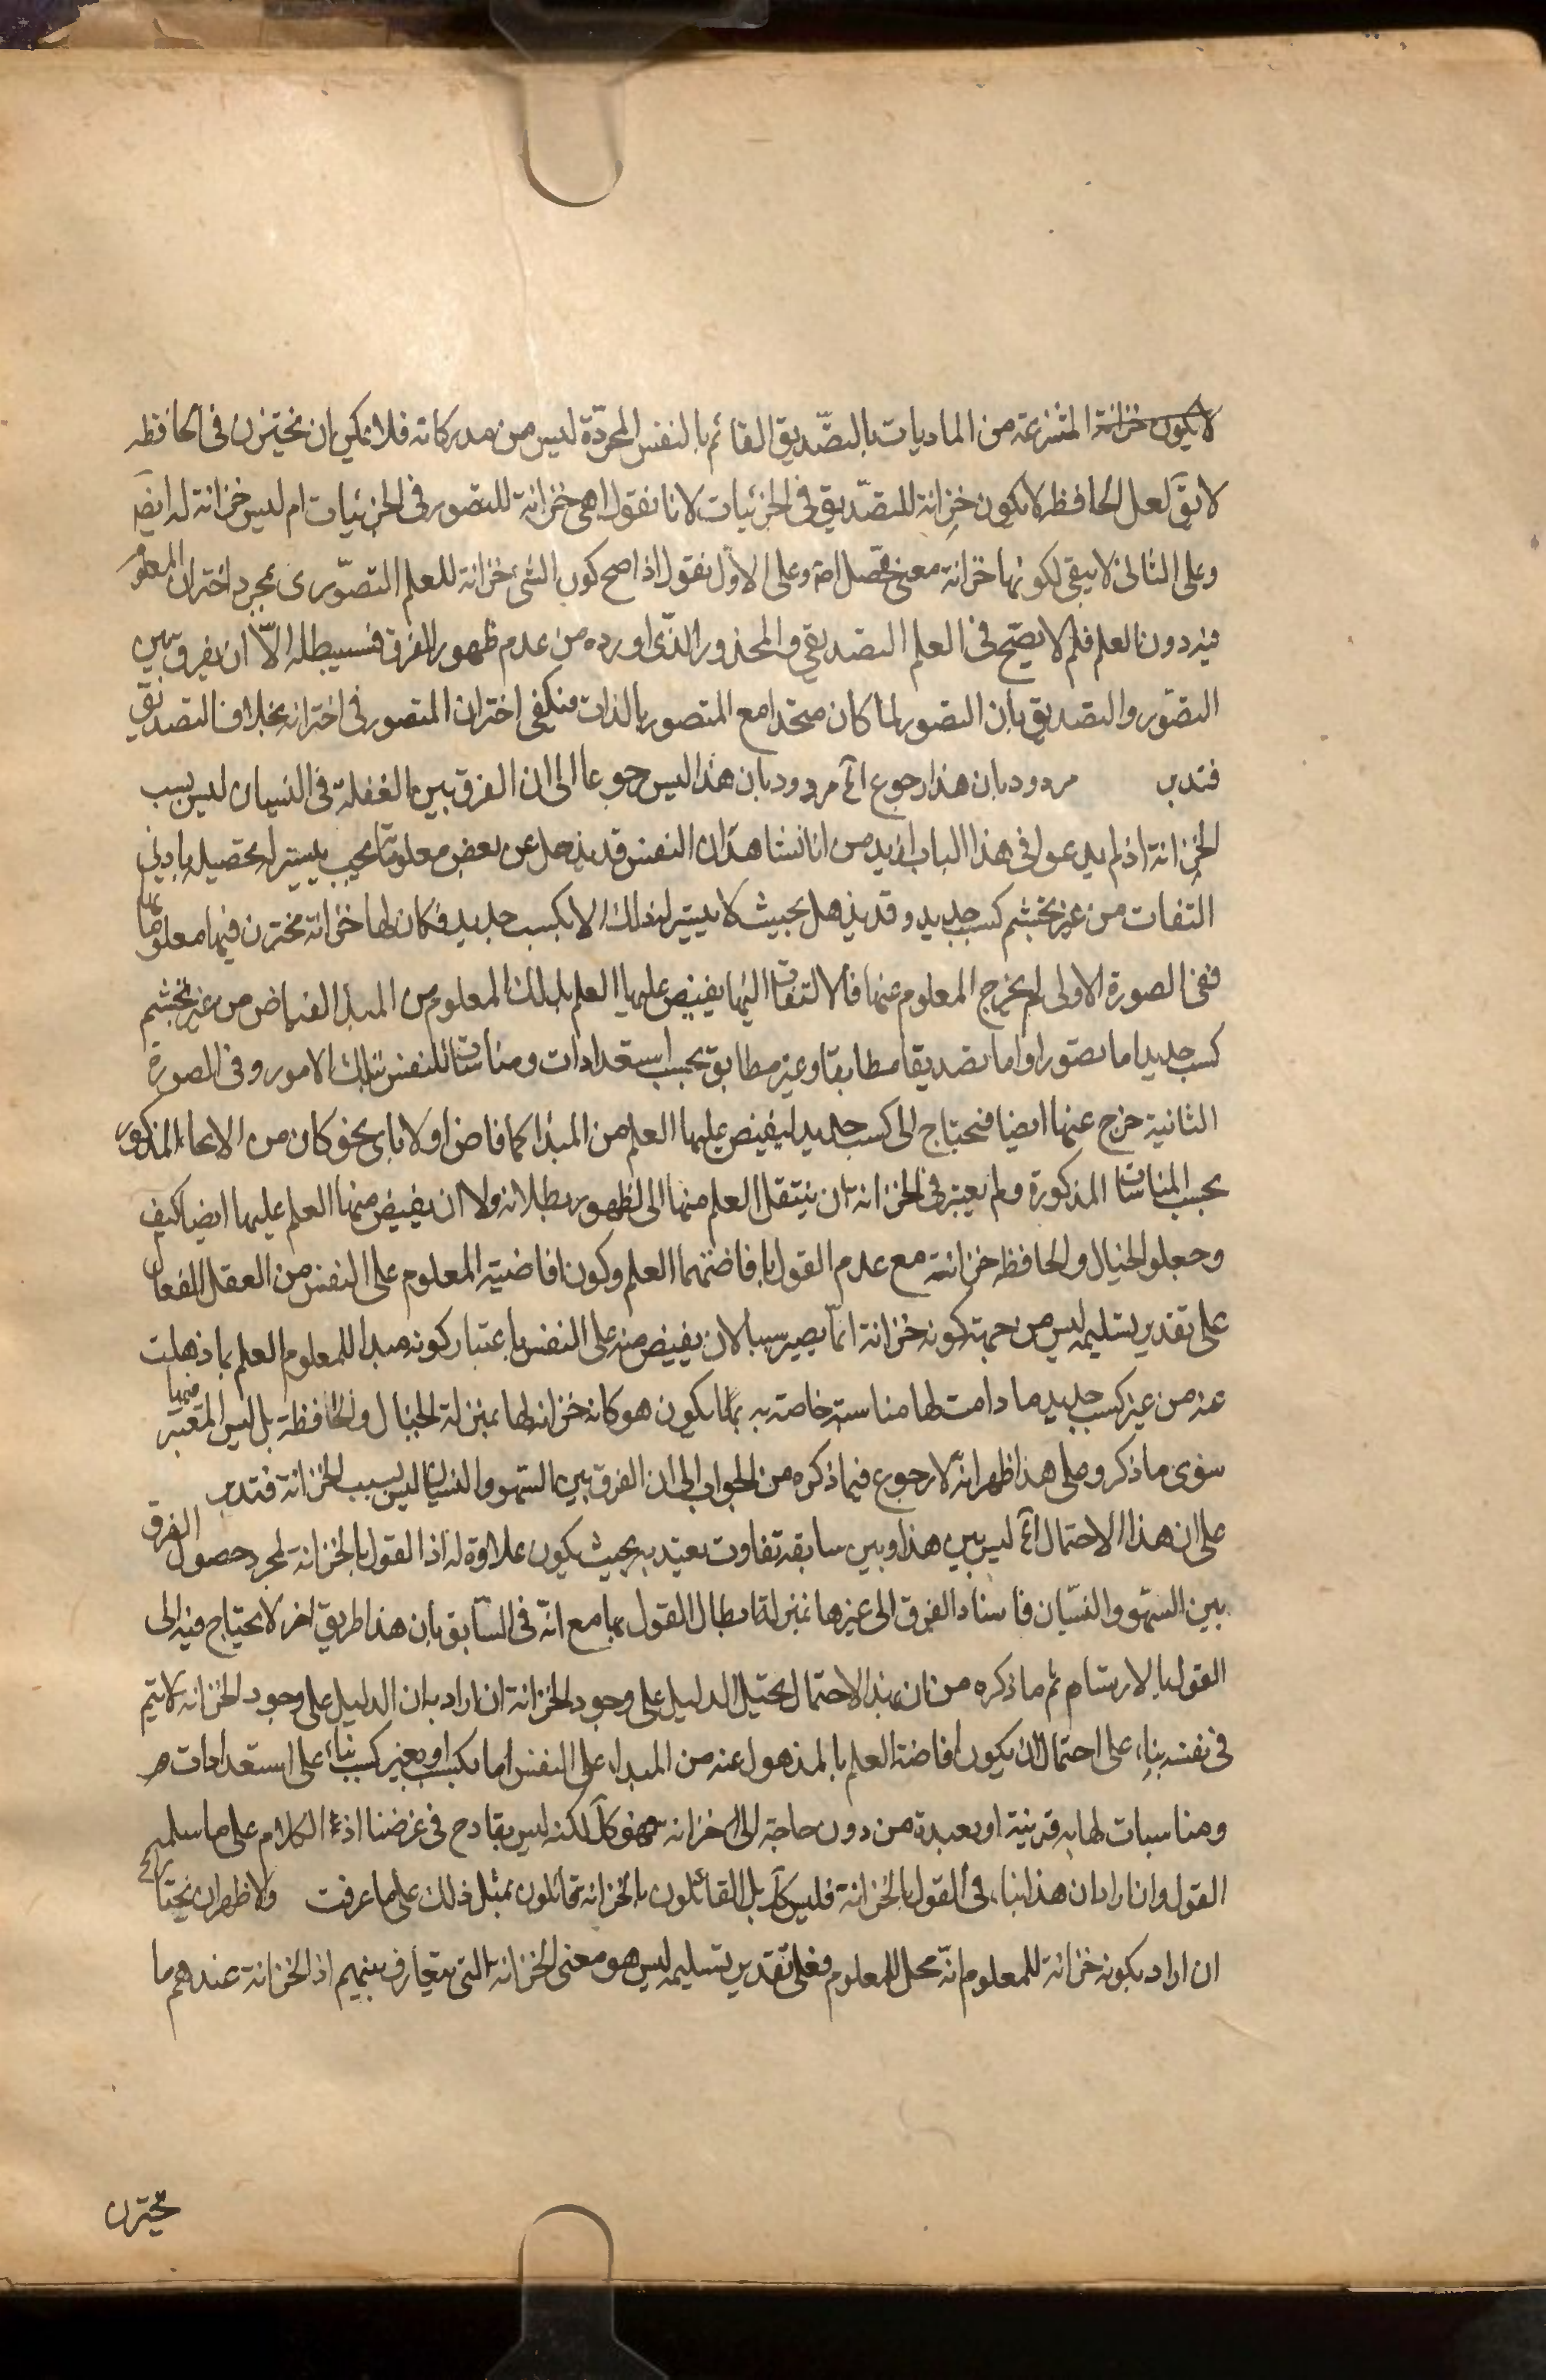 لا يكون خزانة المنتزعة من الماديات بالتصديق القائم بالنفس المجردة ليس من مدركاته فلا يمكن ان يختزن فى الحافظه
لا يق لعل الحافظه لا يكون خزانة للتصديق فى الجزئيات لانا نقول اهى خزانة للتصور فى الجزئيات ام ليس خزانة له ايضا
وعلى الثانى لا يبقى لكونها خزانة معنى محصل اصلا وعلى الاول نقول اذا صح كون الشئ خزانة للعلم التصورى بمجرد اختزان المعلوم
فيه دون العلم فلم لا يصح فى العلم التصديقى والمحذور الذى اورده من عدم ظهور الفرق فسيبطله الا ان يفرق بين
التصور والتصديق بان التصور لما كان متحدا مع المتصور بالذات فيكفى اختزان المتصور فى اختزانه بخلاف التصديق
فتدبر مردود بان هذا رجوع آه مردود بان هذا ليس رجوعا الى ان الفرق بين الغفلة فى النسيان ليس بسبب
الخزانة اذ لم يدعوا فى هذا الباب ازيد من انا نشاهد ان النفس قد يذهل عن بعض معلوماتها بحيث يتيسر له تحصيله بادنى
التفات من غير تجشم كسب جديد وقد يذهل بحيث لا يتيسر لها ذلك الا بكسب جديد فكان لها خزانة يختزن فيها معلوماتها
ففى الصورة الاولى لم يخرج المعلوم عنها فالالتفات اليها يفيض عليها العلم بذلك المعلوم من المبدا الفياض من غير تجشم
كسب جديد اما تصورا واما تصديقا مطابقا وغير مطابق بحسب استعدادات ومناسبات للنفس بتلك الامور وفى الصورة
الثانية خرج عنها ايضا فتحتاج الى كسب جديد ليفيض عليها العلم من المبدا كما فاض اولا باى نحو كان من الانحاء المذكور
بحسب المناسبات المذكورة ولم يعتبر فى الخزانة ان ينتقل العلم منها الى لظهور بطلانه ولا ان يفيض منها العلم عليها ايضا كيف
وجعلوا الخيال والحافظه خزانة مع عدم القول بافاضتهما العلم وكون افاضة المعلوم على النفس من العقل الفعال
على تقدير تسليمه ليس من جهة كونه خزانة انما يصير سببا لان يفيض منه على النفس باعتبار كونه مبدا للمعلوم العلم بما ذهلت
عنه من غير كسب جديد ما دامت لها مناسبة خاصة به بما يكون هو كانه خزانة لها بمنزلة الخيال والحافظة بل ليس المعتبر فيها
سوى ما ذكر وعلى هذا ظهر انه لا رجوع فيما ذكره من الجواب الى ان الفرق بين السهو والنسيان ليس بسبب الخزانة فتدبر
على ان هذا الاحتمال آه ليس بين هذا وبين سابقه تفاوت يعتد به بحيث يكون علاوة له اذ القول بالخزانة لمجرد حصول الفرق
بين السهو والنسيان فاسناد الفرق الى غيرها بمنزلة ابطال القول بها مع انه فى السابق بان هذا طريق اخر لا يحتاج فيه الى
القول بالارتسام ثم ما ذكره من ان بهذا الاحتمال يختل الدليل على وجود الخزانة ان اراد به ان الدليل على وجود الخزانة لا يتم
فى نفسه بناء على احتمال ان يكون افاضة العلم بالمذهول عنه من المبداء على النفس اما بكسب او بغير كسب بناء على استعدادات
ومناسبات لها به قريبة او بعيدة من دون حاجة الى الخزانه فهو كك لكنه ليس بقادح فى غرضنا اذ الكلام على ما سلمه
القول وان اراد ان هذا ينافى القول بالخزانة فليس كك بل القائلون بالخزانة قائلون بمثل ذلك على ما عرفت والاظهر ان يحتاج آه
ان اراد بكونه خزانة للمعلوم انه محل للمعلوم فعلى تقدير تسليمه ليس هو معنى الخزانة التى يتعارف بينهم اذ الخزانة عندهم ما
يختزن